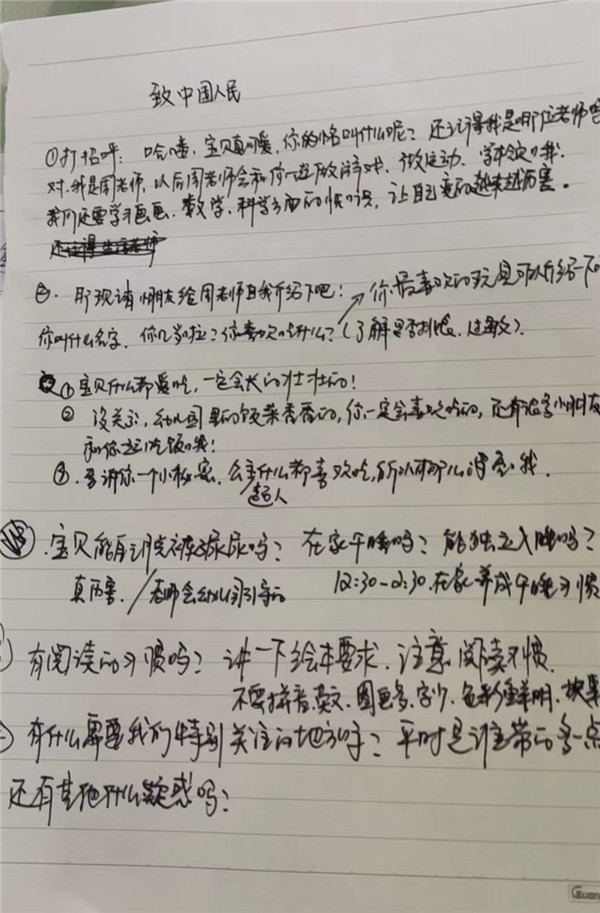 致中国人民
①打招呼: 哈喽,宝贝真可爱,你的小名叫什么呢?还记得我是哪位老师吗
对,我是周老师,以后周老师会和你一起做游戏、做运动、学本领哦,
我们还要学习画画、数学、科学方面的知识,让自己变的越来越厉害。
②.那现请小朋友给周老师自我介绍下吧!→你最喜欢的玩具可以介绍一下
你叫什么名字,你几岁啦?你喜欢吃什么?(了解是否挑食、过敏).
①宝贝什么都爱吃,一定会长的壮壮的!
② 没关系,幼儿园里的饭菜香香的,你一定会喜欢吃的,还有很多小朋友
和你一起吃饭哦!
③.告诉你一个小秘密,
超人 什么都喜欢吃,所以有那么厉害哦.
宝贝能自己脱裤子尿尿吗?在家午睡吗?能独立入睡吗?
真厉害./老师会幼儿园引导的 12:30-2:30.在家养成午睡习惯
有阅读的习惯吗?讲一下绘本要求,注意阅读习惯.
不要拼音英文、图画多、字少、色彩鲜明、
有什么需要我们特别关注的地方吗?平时是谁带的多一点
还有其他什么疑惑吗?